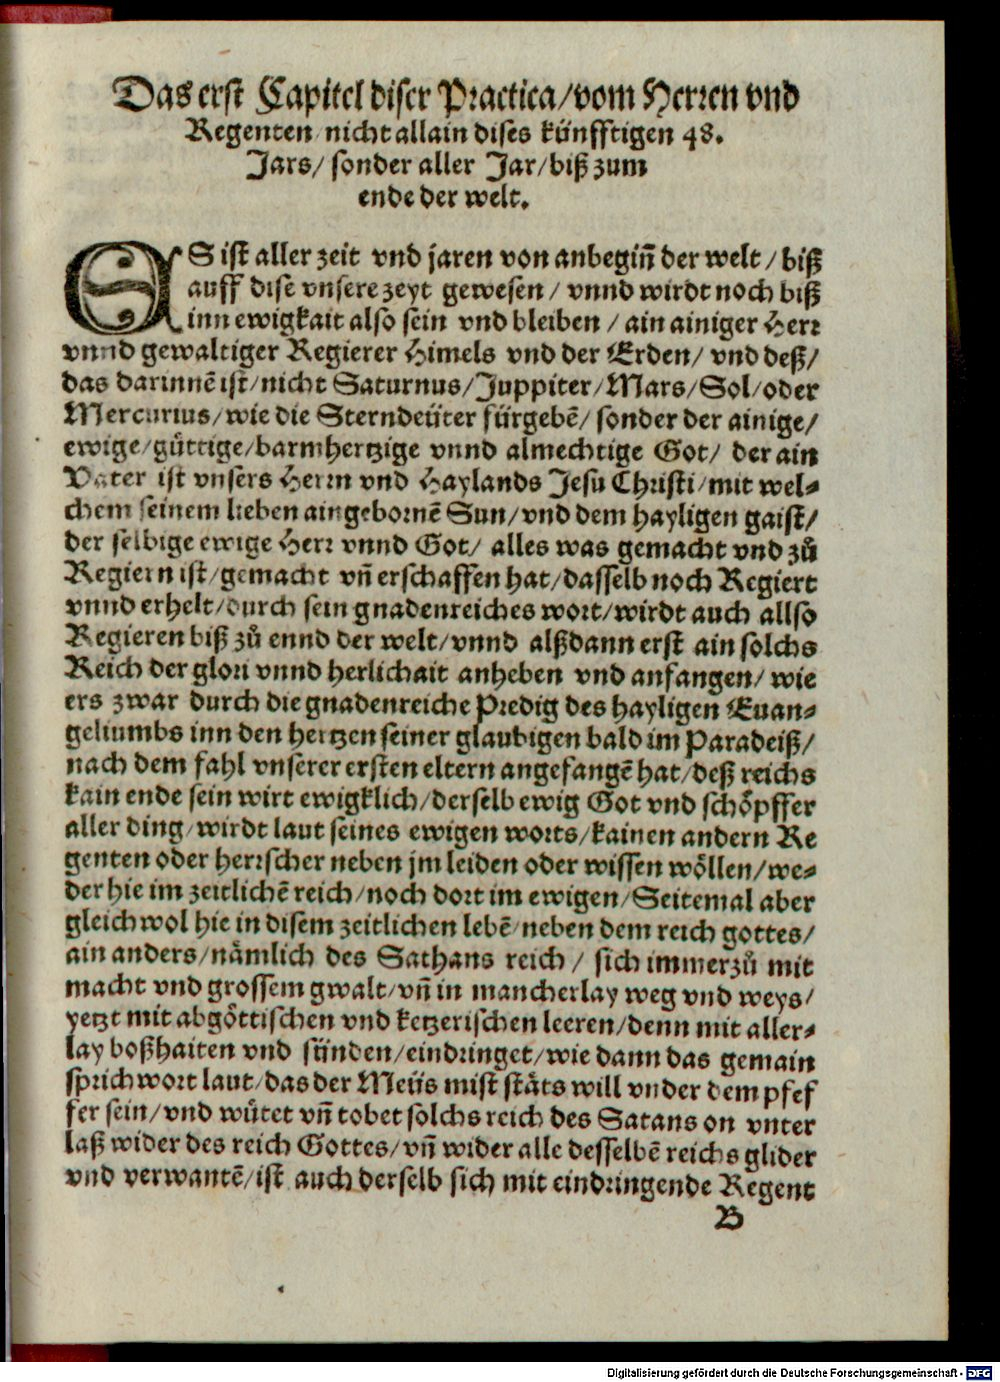 Das erst Capitel diser Practica/vom Herren vnd
Regenten nicht allain dises künfftigen 48.
Jars/ sonder aller Jar/biß zum
ende der welt.
ES ist aller zeit vnd jaren von anbegiñ der welt / biß
auff dise vnsere zeyt gewesen / vnnd wirdt noch biß
inn ewigkait also sein vnd bleiben / ain ainiger Herr
vnnd gewaltiger Regierer Himels vnd der Erden/ vnd deß/
das darinnẽ ist/nicht Saturnus/Juppiter/Mars/Sol/oder
Mercurius/wie die Sterndeüter fürgebẽ/ sonder der ainige/
ewige/güttige/barmhertzige vnnd almechtige Got/ der ain
Vater ist vnsers Herrn vnd Haylands Jesu Christi/mit wel⸗
chem seinem lieben aingebornẽ Sun/vnd dem hayligen gaist/
der selbige ewige Herr vnnd Got/ alles was gemacht vnd zů
Regiern ist/gemacht vñ erschaffen hat/dasselb noch Regiert
vnnd erhelt/durch sein gnadenreiches wort/wirdt auch allso
Regieren biß zů ennd der welt/vnnd alßdann erst ain solchs
Reich der glori vnnd herlichait anheben vnd anfangen/ wie
ers zwar durch die gnadenreiche Predig des hayligen Euan⸗
geliumbs inn den hertzen seiner glaubigen bald im Paradeiß/
nach dem fahl vnserer ersten eltern angefangẽ hat/deß reichs
kain ende sein wirt ewigklich/derselb ewig Got vnd schöpffer
aller ding/wirdt laut seines ewigen worts/kainen andern Re
genten oder herrscher neben jm leiden oder wissen wöllen/we⸗
der hie im zeitlichẽ reich/noch dort im ewigen/Seitemal aber
gleich wol hie in disem zeitlichen lebẽ/neben dem reich gottes/
ain anders/nämlich des Sathans reich / sich immerzů mit
macht vnd grossem gwalt/vñ in mancherlay weg vnd weys/
yetzt mit abgöttischen vnd ketzerischen leeren/denn mit aller⸗
lay boßhaiten vnd sünden/eindringet/wie dann das gemain
sprichwort laut/das der Meüs mist stäts will vnder dem pfef
fer sein/vnd wütet vñ tobet solchs reich des Satans on vnter
laß wider des reich Gottes/vñ wider alle desselbẽ reichs glider
vnd verwantẽ/ist auch derselb sich mit eindringende Regent
B
Digitalisierung gefördert durch die Deutsche Forschungsgemeinschaft - DFG